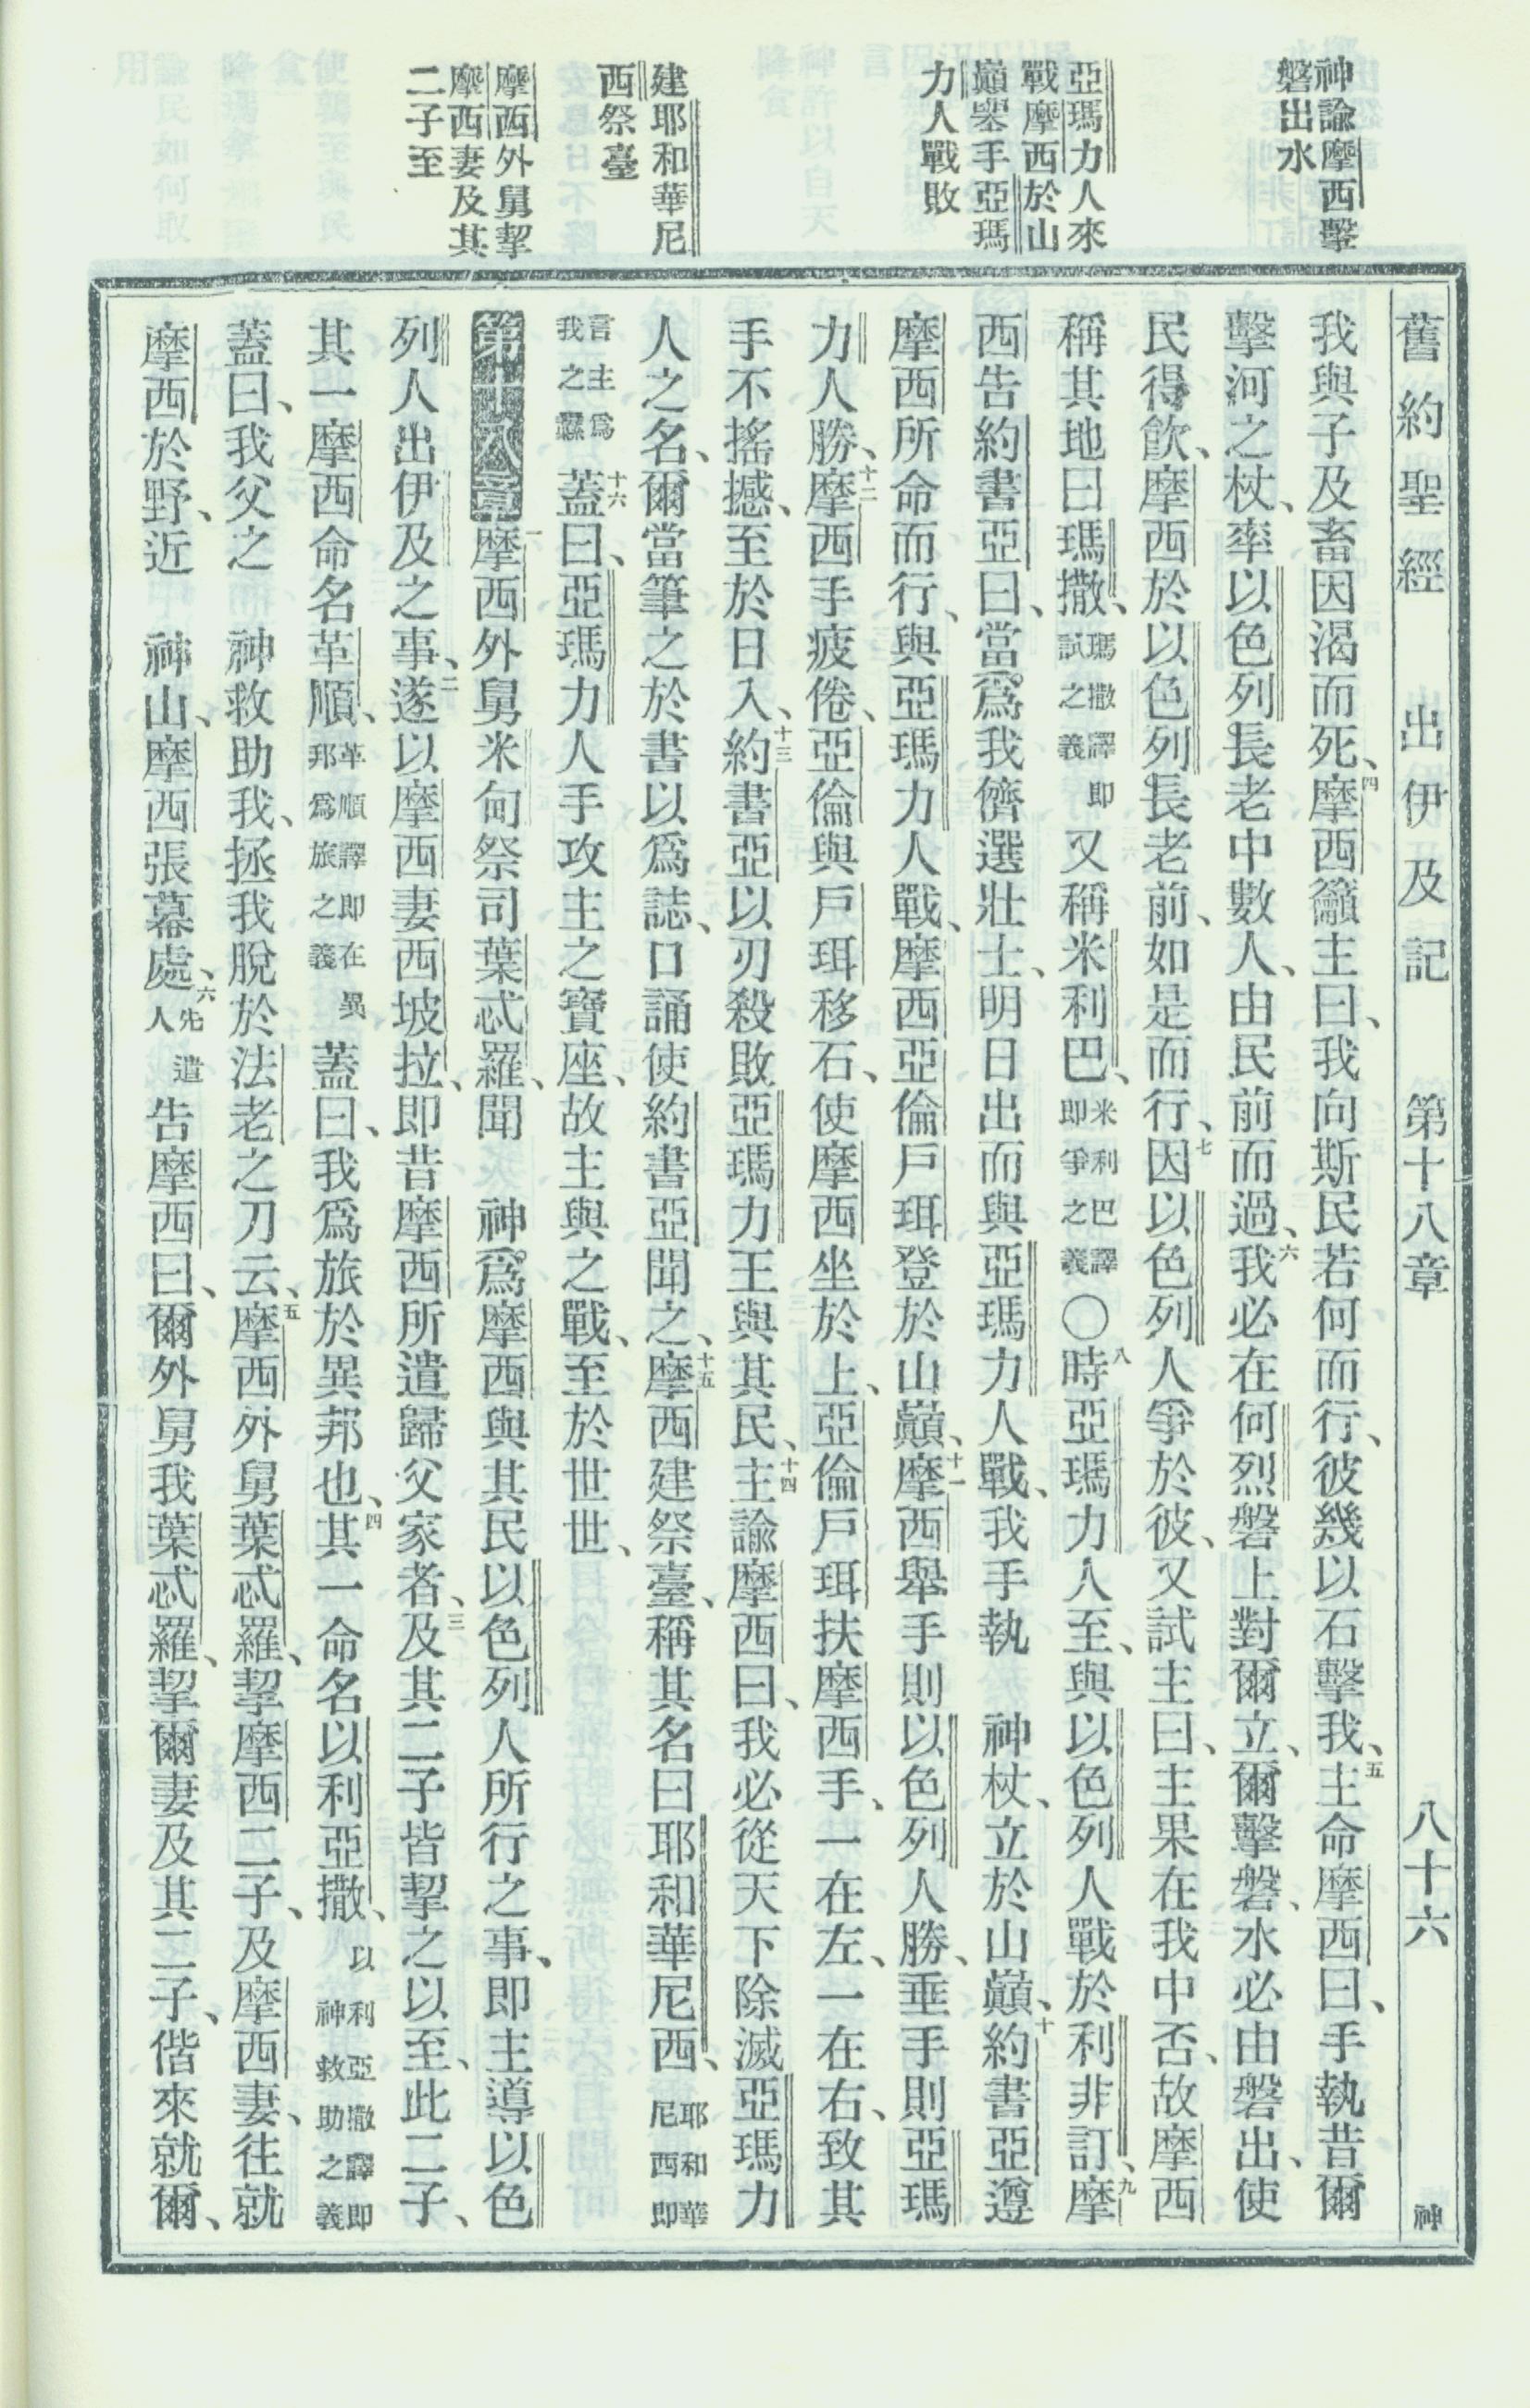 舊約聖經　出伊及記　第十八章　八十六　神
神諭摩西擊
磐出水
亞瑪力人來
戰摩西於山
巔舉手亞瑪
力人戰敗
建耶和華尼
西祭臺
摩西外舅挈
摩西妻及其
二子至
我與子及畜因渴而死、四摩西籲主曰、我向斯民若何而行、彼幾以石擊我、五主命摩西曰、手執昔爾
擊河之杖、率以色列長老中數人、由民前而過、六我必在何烈磐上對爾立、爾擊磐、水必由磐出、使
民得飲、摩西於以色列長老前、如是而行、七因以色列人爭於彼、又試主曰、主果在我中否、故摩西
稱其地曰瑪撒、瑪撒譯即試之義又稱米利巴、米利巴譯即爭之義〇八時亞瑪力人至、與以色列人戰於利非訂、九摩
西告約書亞曰、當爲我儕選壯士、明日出而與亞瑪力人戰、我手執　神杖、立於山巔、十約書亞遵
摩西所命而行、與亞瑪力人戰、摩西亞倫戶珥登於山巔、十一摩西舉手則以色列人勝、垂手則亞瑪
力人勝、十二摩西手疲倦、亞倫與戶珥移石、使摩西坐於上、亞倫戶珥扶摩西手、一在左、一在右、致其
手不搖撼、至於日入、十三約書亞以刃殺敗亞瑪力王與其民、十四主諭摩西曰、我必從天下除滅亞瑪力
人之名、爾當筆之於書以爲誌、口誦使約書亞聞之、十五摩西建祭臺、稱其名曰耶和華尼西、耶和華尼西即
言主爲我之纛十六蓋曰、亞瑪力人手攻主之寶座、故主與之戰、至於世世、
第十八章一摩西外舅米甸祭司葉忒羅、聞　神爲摩西與其民以色列人所行之事、即主導以色
列人出伊及之事、二遂以摩西妻西坡拉、即昔摩西所遣歸父家者、三及其二子皆挈之以至、此二子、
其一摩西命名革順、革順譯即在異邦爲旅之義蓋曰、我爲旅於異邦也、四其一命名以利亞撒、以利亞撒譯即神救助之義
蓋曰、我父之　神救助我、拯我脫於法老之刀云、五摩西外舅葉忒羅、挈摩西二子、及摩西妻、往就
摩西於野、近　神山、摩西張幕處、六先遣人告摩西曰、爾外舅我葉忒羅、挈爾妻及其二子、偕來就爾、